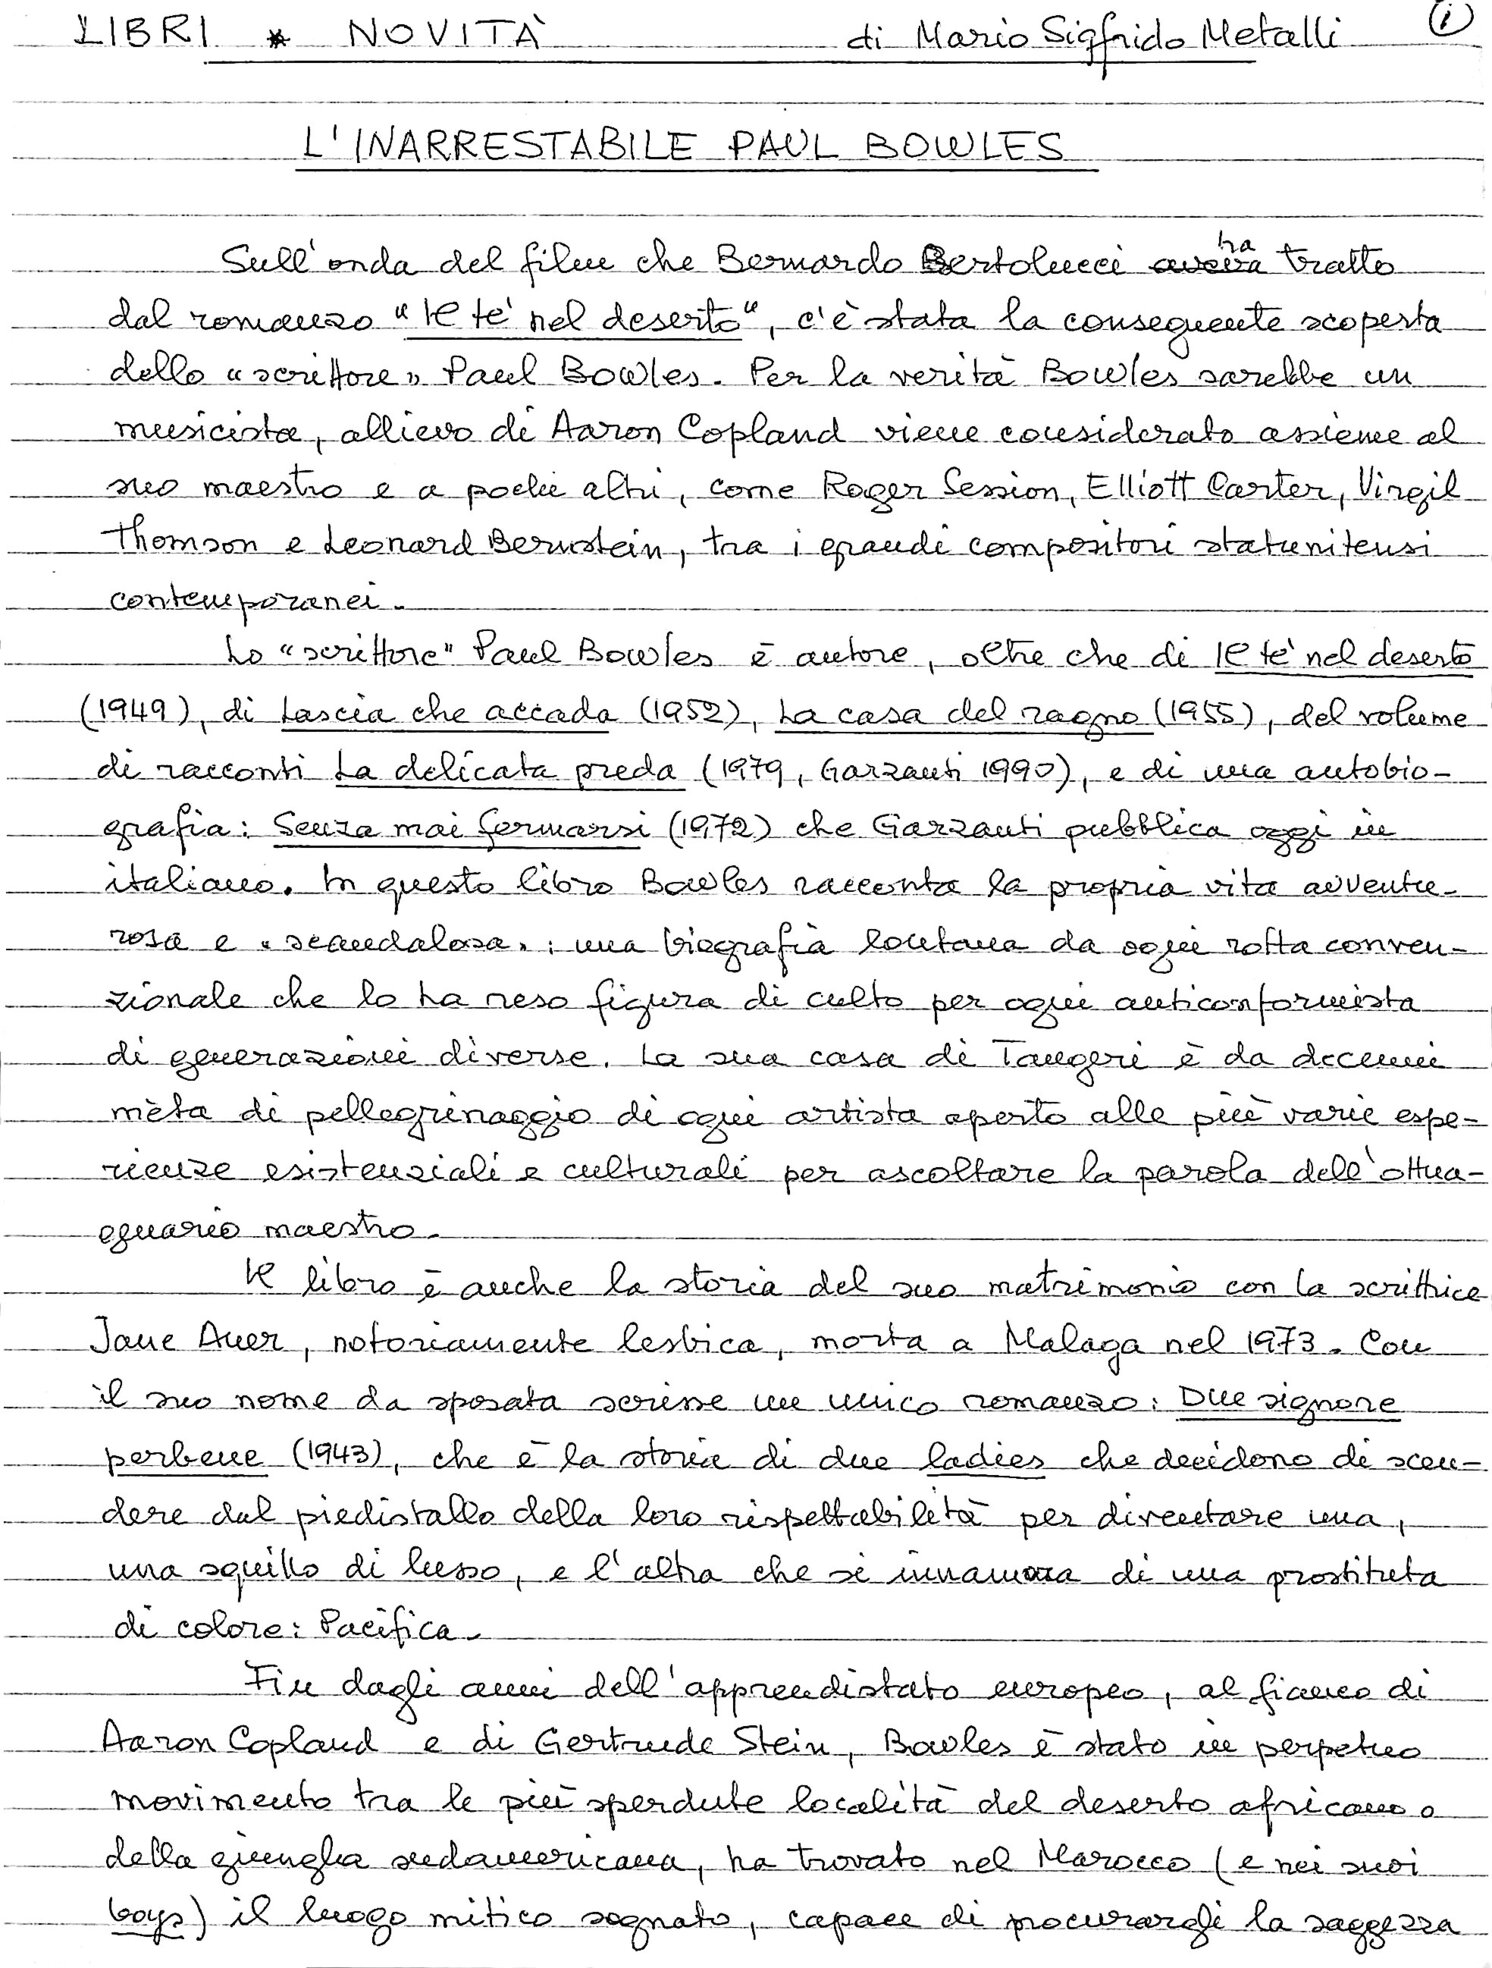 LIBRI * NOVITÀ di Mario Sigfrido Metalli 1
L'INARRESTABILE PAUL BOWLES
Sull'onda del film che Bernardo Bertolucci ha tratto
dal romanzo "Il tè nel deserto", c'è stata la conseguente scoperta
dello "scrittore" Paul Bowles. Per la verità Bowles sarebbe un
musicista, allievo di Aaron Copland viene considerato assieme al
suo maestro e a pochi altri, come Roger Session, Elliott Carter, Virgil
Thomson e Leonard Bernstein, tra i grandi compositori statunitensi
contemporanei.
Lo "scrittore" Paul Bowles è autore, oltre che di Il tè nel deserto
(1949), di Lascia che accada (1952), La casa del ragno (1955), del volume
di racconti La delicata preda (1979, Garzanti 1990), e di una autobio-
grafia: Senza mai fermarsi (1972) che Garzanti pubblica oggi in
italiano. In questo libro Bowles racconta la propria vita avventu-
rosa e "scandalosa": una biografia lontana da ogni rotta conven-
zionale che lo ha reso figura di culto per ogni anticonformista
di generazioni diverse. La sua casa di Tangeri è da decenni
mèta di pellegrinaggio di ogni artista aperto alle più varie espe-
rienze esistenziali e culturali per ascoltare la parola dell'ottua-
genario maestro.
Il libro è anche la storia del suo matrimonio con la scrittrice
Jane Auer, notoriamente lesbica, morta a Malaga nel 1973. Con
il suo nome da sposata scrisse un unico romanzo: Due signore
perbene (1943), che è la storia di due ladies che decidono di scen-
dere dal piedistallo della loro rispettabilità per diventare una,
una squillo di lusso, e l'altra che si innamora di una prostituta
di colore: Pacifica.
Fin dagli anni dell'apprendistato europeo, al fianco di
Aaron Copland e di Gertrude Stein, Bowles è stato in perpetuo
movimento tra le più sperdute località del deserto africano o
della giungla sudamericana, ha trovato nel Marocco (e nei suoi
boys) il luogo mitico sognato, capace di procurargli la saggezza